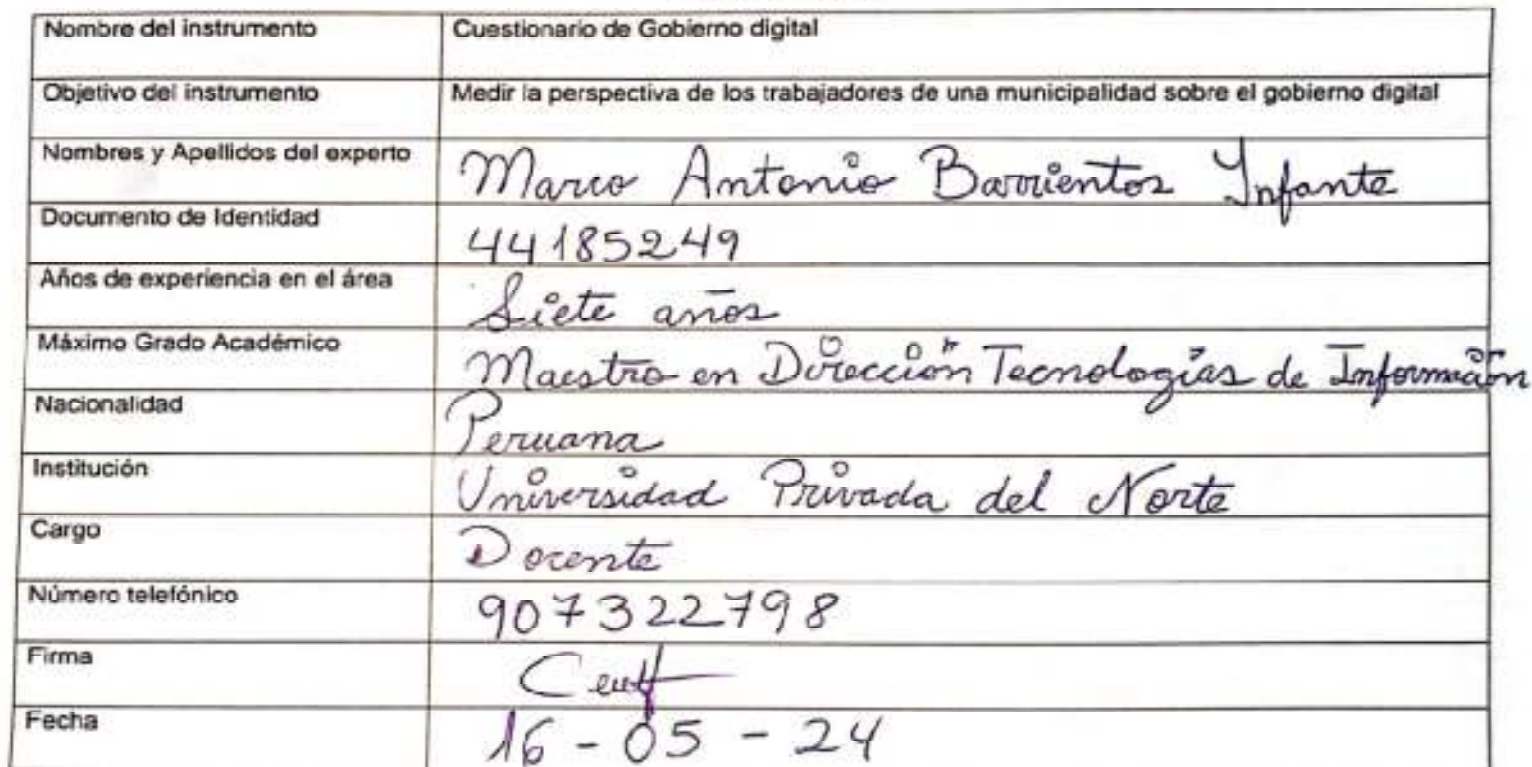 Nombre del instrumento Cuestionario de Gobierno digital
Objetivo del instrumento Medir la perspectiva de los trabajadores de una municipalidad sobre el gobierno digital
Nombres y Apellidos del experto Marco Antonio Barrientos Infante
Documento de Identidad 44185249
Años de experiencia en el área Siete años
Máximo Grado Académico Maestro en Dirección Tecnologías de Información
Nacionalidad Peruana
Institución Universidad Privada del Norte
Cargo Docente
Número telefónico 907322798
Firma
Fecha 16-05-24